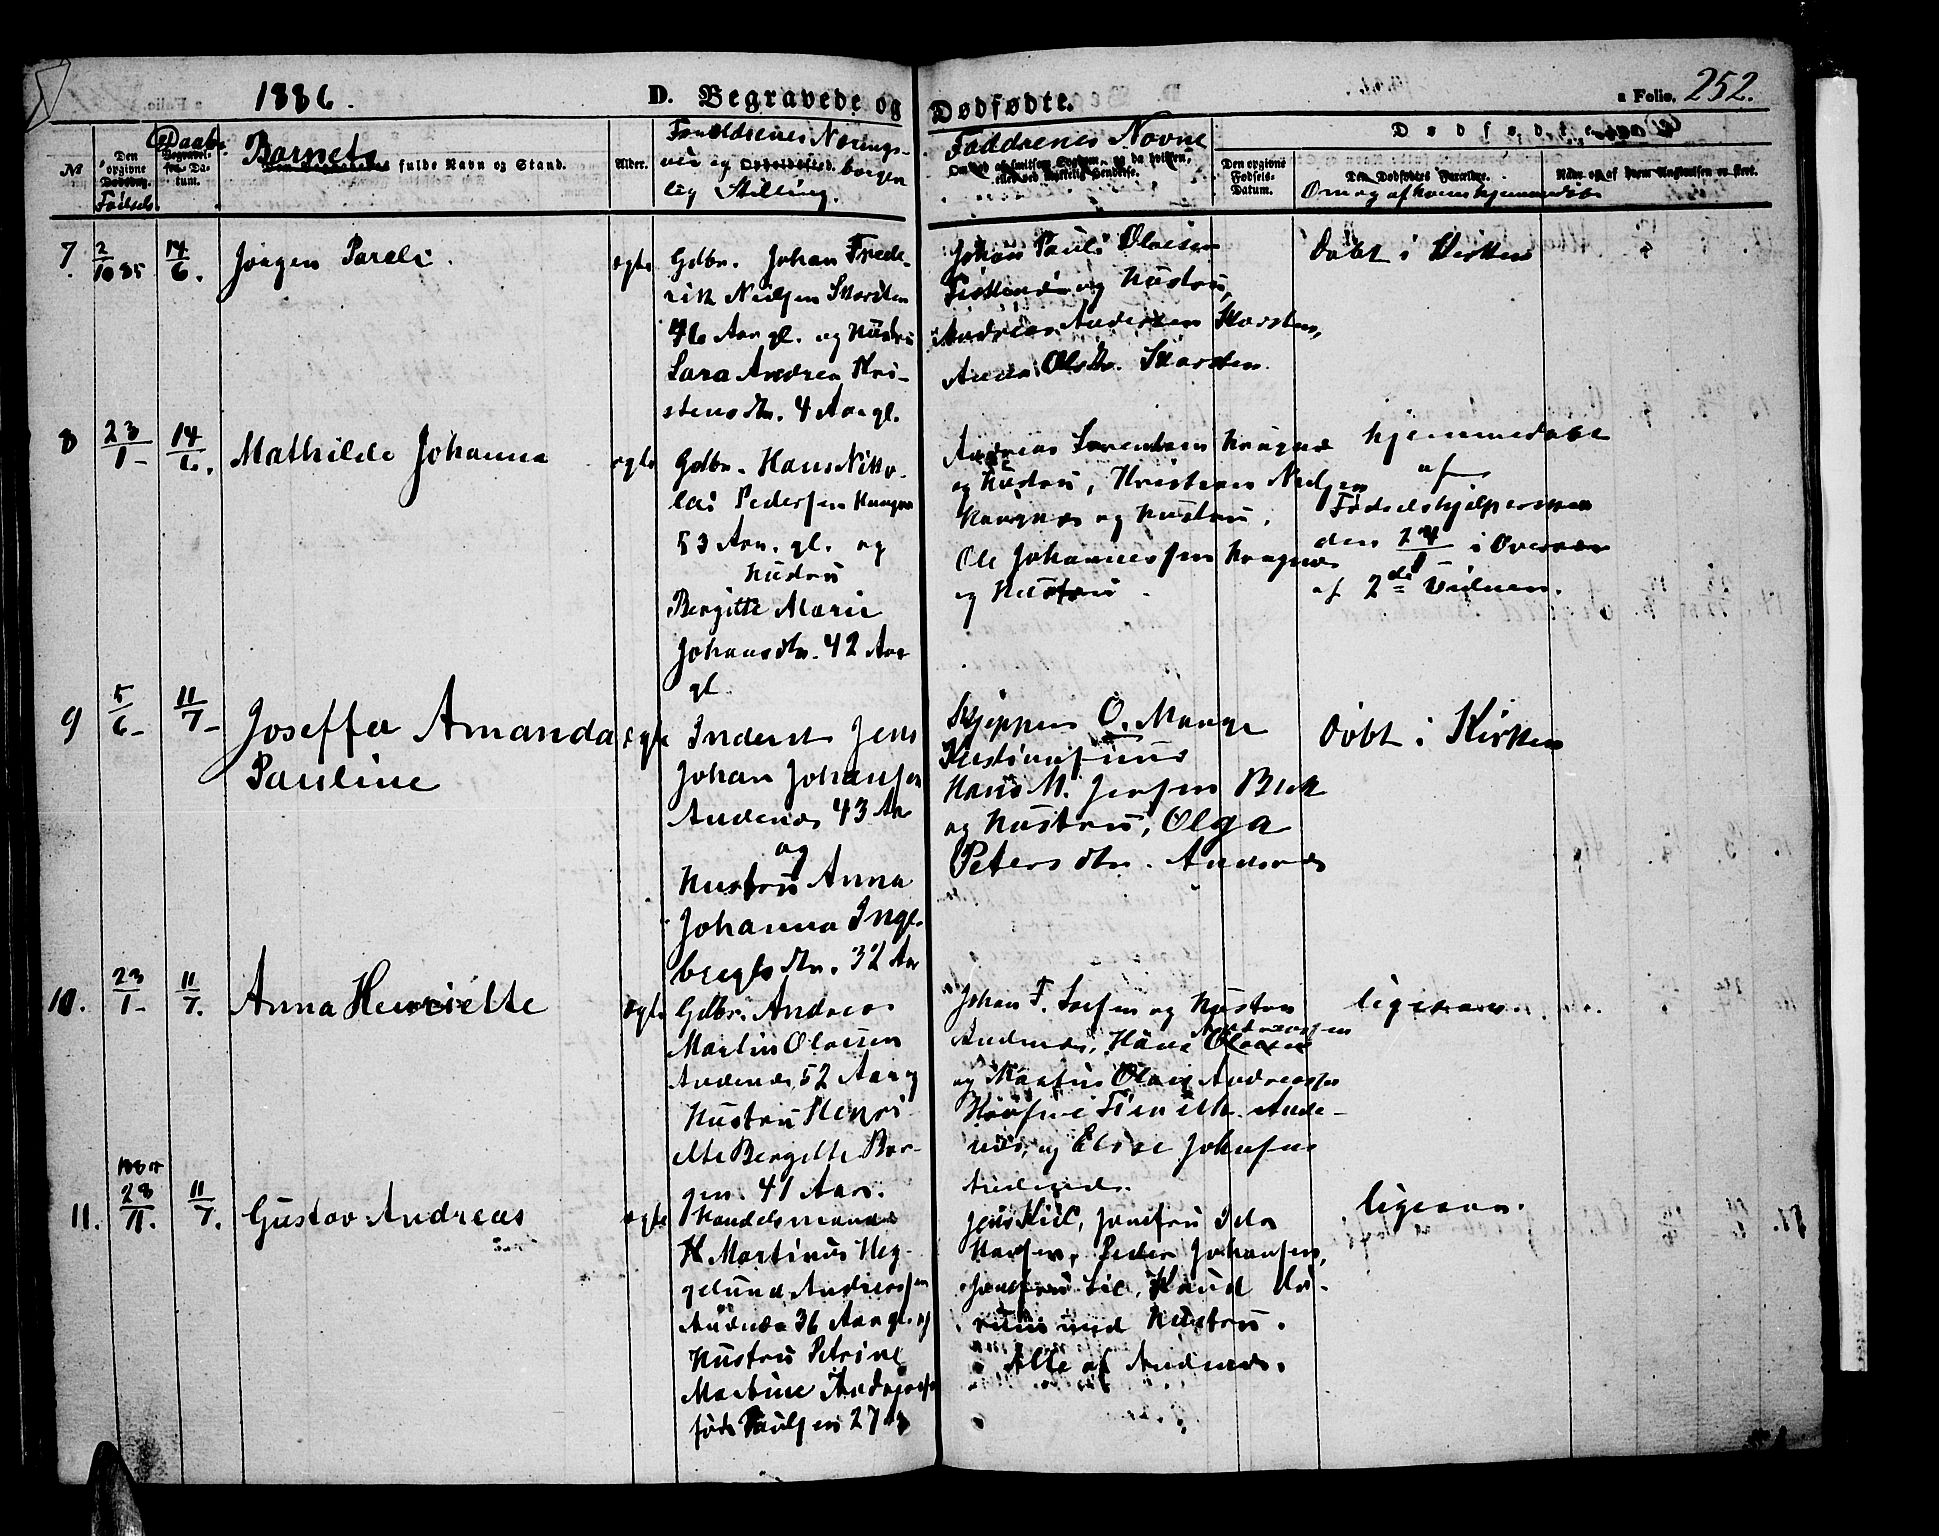 1886.
D. Begravede og Dødfødte.
a Folio. 252.
No
Den opgivne Dødsdag.
Fødsels
Daabs
Begravelses-Datum.
Barnets
fulde Navn og Stand.
Alder.
Forældrenes Nærings-
vei og Opholdssted. borger
lig Stilling.
Faddrenes Navne
Dødfødte.
Den opgivne Fødsels-Datum.
Den Dødfødtes Forældre.
Om og af hvem hjemmedøbt
7.
2/10 85
14/6.
Jørgen Pareli.
ægte
Gdbr. Johan Frede-
rik Nielsen Skarsten
46 Aar gl. og Hustru
Lara Andrea Kri-
stensdtr. 4 Aar gl.
Johan Pauli Olaisen
og Hustru,
Andreas Andersen Skarsten,
Anda Olsdtr. Skarsten.
Døbt i Kirken
8
23/1-
14/6.
Mathilde Johanna
ægte
Gdbr. Hans Niko-
lai Pedersen Haugnæs
53 Aar. gl. og
Hustru
Bergitte Marie
Johansdtr. 42 Aar
gl.
Andreas Sørensen Haugnæs
og Hustru, Kristian Nilsen
Haugnæs og Hustru,
Ole Johannessen Haugnæs
og Hustru.
hjemmedøbt
af
Fødselshjælpersken
den 24/1 i Overvær
af 2de Vidner.
9
5/6-
11/7-
Joseffa Amanda
Pauline
ægte
Inderst Jens
Johan Johansen
Andenæs 43 Aar
og
Hustru Anna
Johanna Inge-
brigtsdtr. 32 Aar
Skipper O. Mange
Kristiansund
Hans M. Jensen Bleik
og Hustru, Olga
Petersdtr. Andenæs
Døbt i Kirken
10.
23/1-
11/7.
Anna Henriette
ægte
Gdbr. Andreas
Martin Olaisen
Andenæs, 52 Aar og
Hustru Henri-
ette Bergitte Bor-
gen. 41 Aar.
Johan F. og Hustru
Andreassen
Andenæs, Hans Olaisen
og Martin Olaus Andreassen
Ande-
næs, og Elise Johnsen
Andenæs.
ligesaa.
11.
1885
28/11.
11/7.
Gustav Andreas
ægte
Handelsmand
H Martinus Heg-
gelund Andreassen
Andenæs 36 Aar gl. og
Hustru Petrine
Martine Andreassen
født Paulsen 27
Jens Kiil, Jomfru Ida
Hansen, Peder Johansen,
Jomfru Lie, Knud Lo-
rum med Hustru.
Alle af Andenæs.
ligesaa.